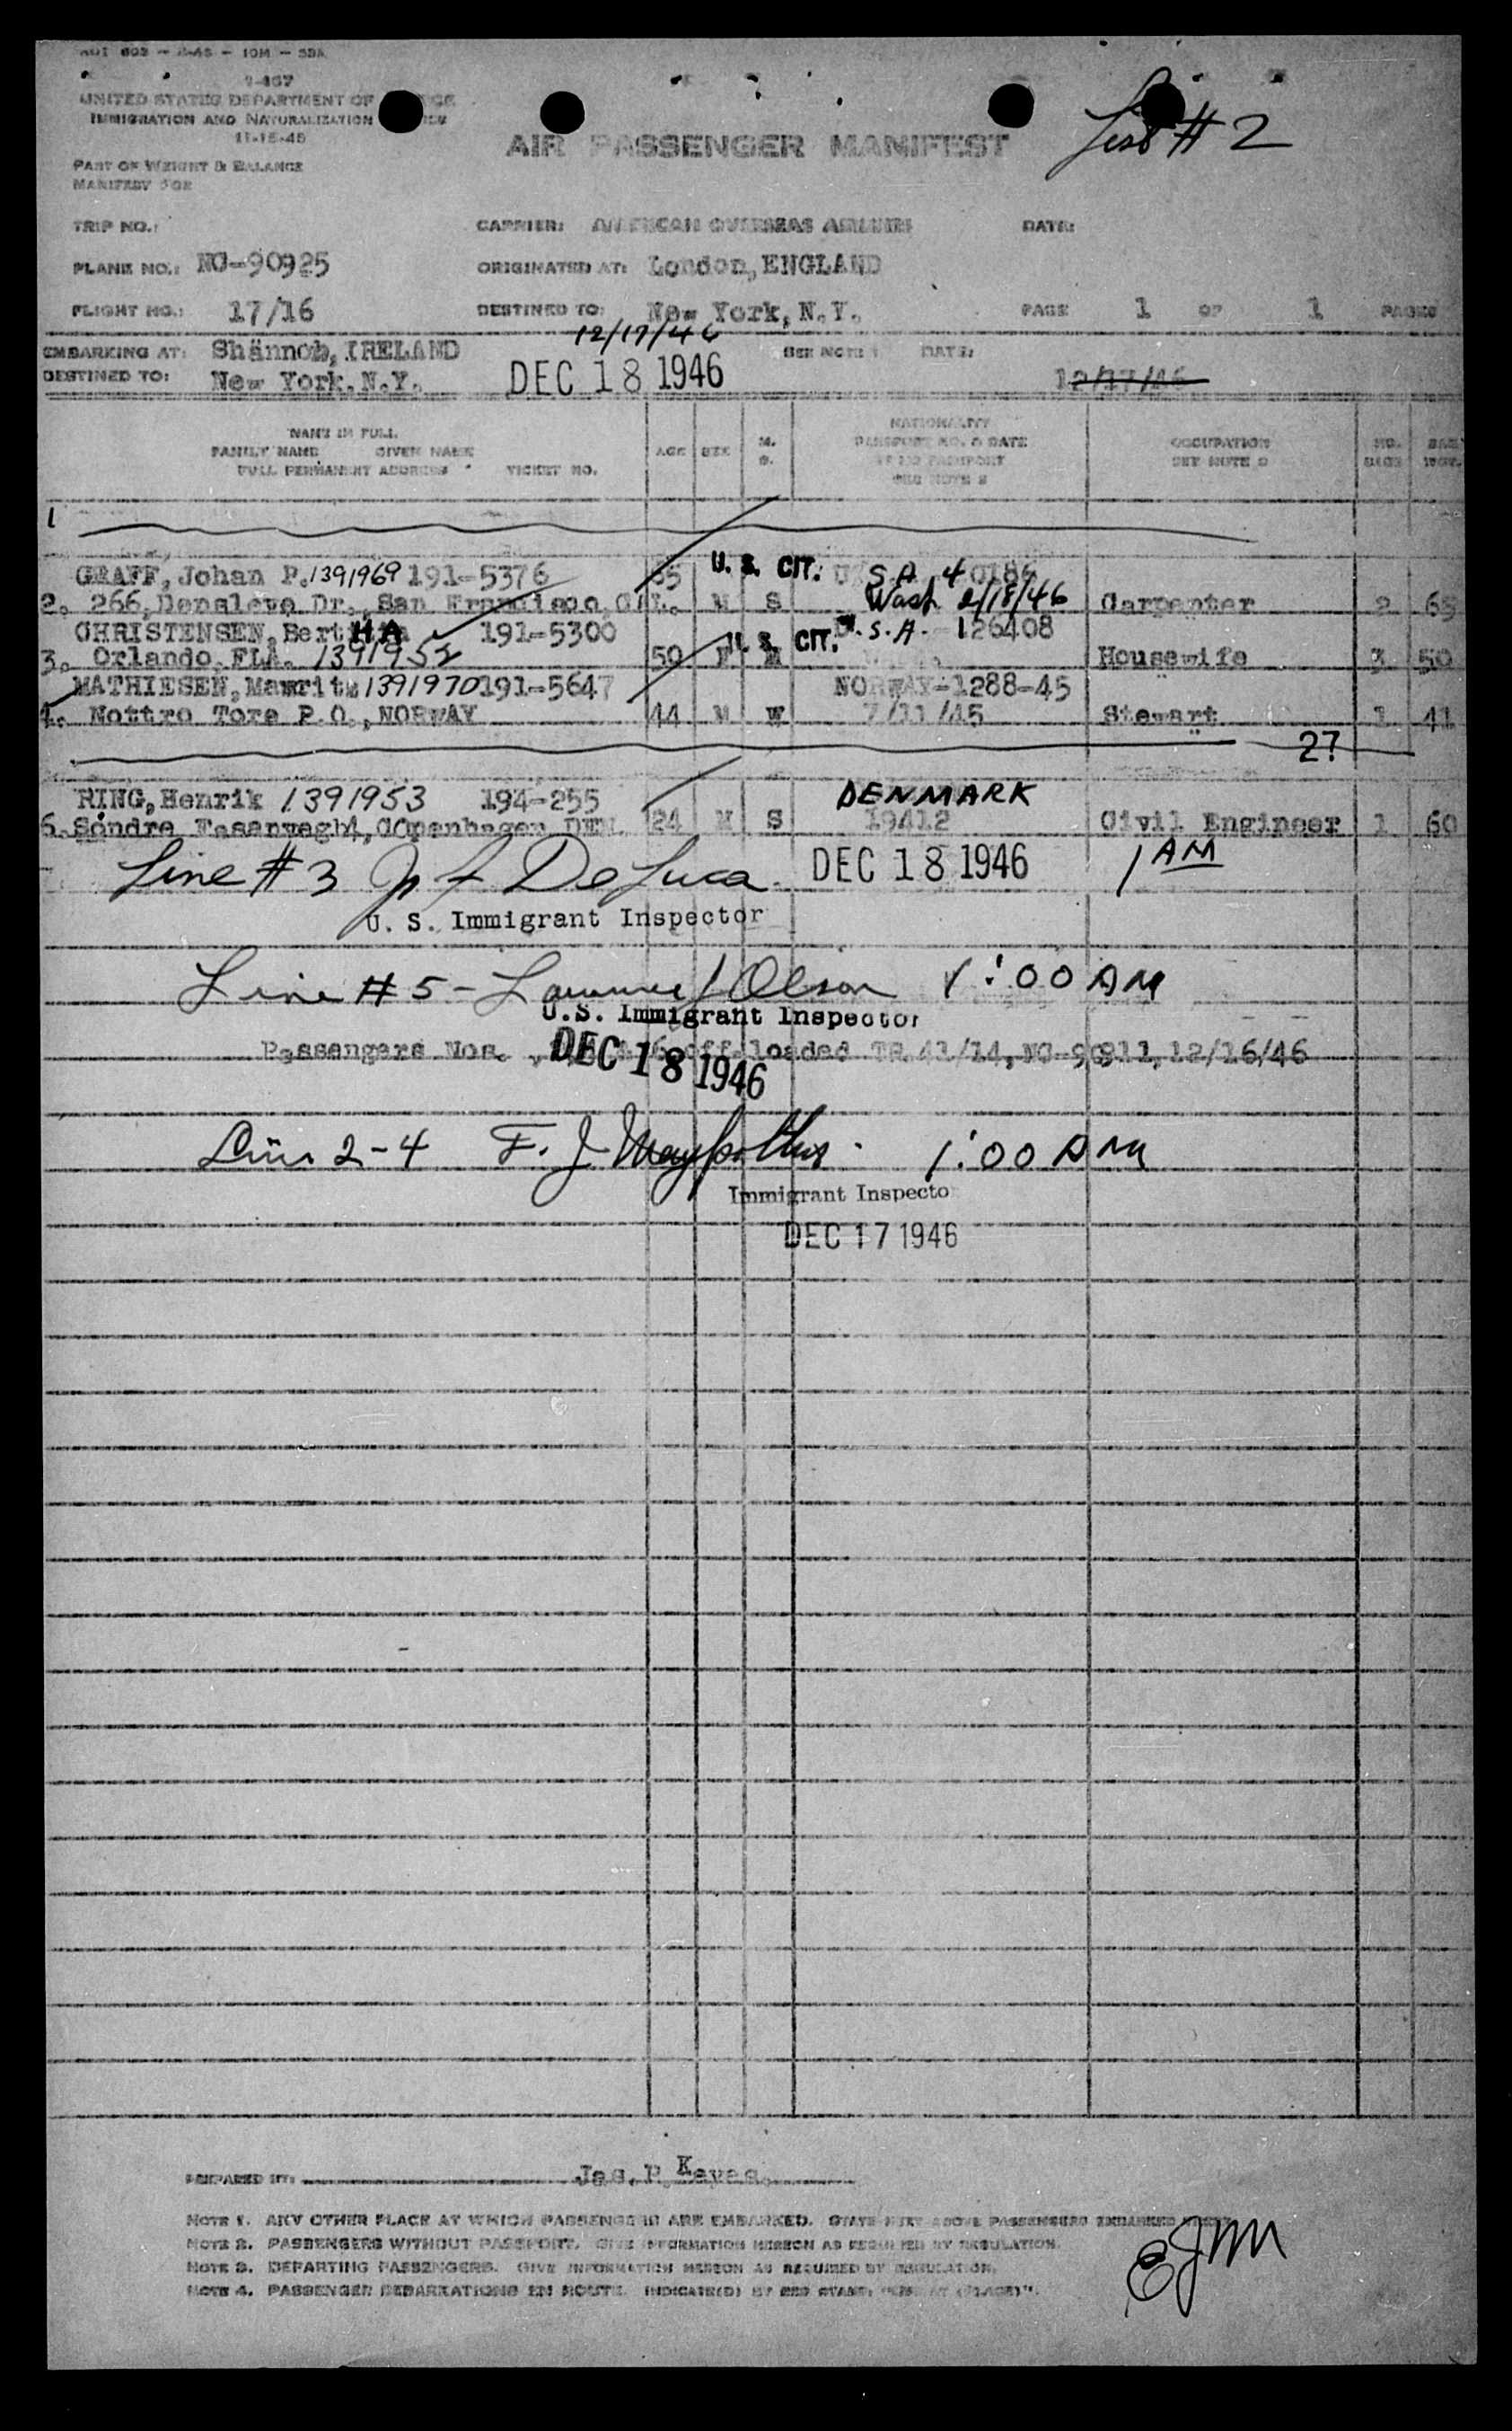 List # 2
I-467
UNITED STATES DEPARTMENT OF
IMMIGRATION AND NATURALIZATION
11-15-45
AIR PASSENGER MANIFEST
PART OF WEIGHT & BALANCE
MANIFEST FOR
TRIP NO.: CARRIER: AMERICAN OVERSEAS AIRLINES DATE:
PLANE NO.: NC-90925 ORIGINATED AT: London, ENGLAND
FLIGHT NO.: 17/16 DESTINED TO: New York, N.Y. PAGE 1 OF 1 PAGES
12/17/46
EMBARKING AT: Shannon, IRELAND SEE NOTE 1 DATE:
DESTINED TO: New York, N.Y. DEC 18 1946 12/17/46
NAME IN FULL
FAMILY NAME GIVEN NAME
FULL PERMANENT ADDRESS TICKET NO. AGE SEX M. S.
NATIONALITY
PASSPORT NO. & DATE
IF NO PASSPORT
SEE NOTE 2
OCCUPATION
SEE NOTE 3
NO. BAGS
BAG WGT.
1
GRAFF, Johan P. 1391969 191-5376 U. S. CIT. S.A. 4 0186
2. 266, Dr., San Francisco, CAL. M S Wash 2/18/46 Carpenter 2 65
CHRISTENSEN, Bert HA 191-5300 U. S. CIT. U.S.A. 126408
3. Orlando, FLA. 1391952 50 F M Housewife 3 50
MATHIESEN, Mauritz 1391970 191-5647 NORWAY-1288-45
4. Nottro Tore P.O., NORWAY 44 M W 7/11/45 Stewart 1 41
27
RING, Henrik 1391953 194-255 DENMARK
Søndre Copenhagen DEN. 24 M S 19412 Civil Engineer 1 60
Line # 3 De Luca DEC 18 1946 1 AM
U. S. Immigrant Inspector
Line # 5 - Olson 1:00 AM
U.S. Immigrant Inspector
Passengers Nos. off-loaded TR 41/14, NC-90911, 12/16/46
DEC 18 1946
Line 2-4 F. J. 1:00 AM
Immigrant Inspecto
DEC 17 1946
PREPARED BY: Jas. P. Keyes
NOTE 1. ANY OTHER PLACE AT WHICH PASSENGERS ARE EMBARKED. STATE NEXT ABOVE PASSENGERS EMBARKED
NOTE 2. PASSENGERS WITHOUT PASSPORT. GIVE INFORMATION HEREON AS REQUIRED BY REGULATION.
NOTE 3. DEPARTING PASSENGERS. GIVE INFORMATION HEREON AS REQUIRED BY REGULATION.
NOTE 4. PASSENGER DEBARKATIONS EN ROUTE. INDICATE(D) BY RED STAMP: "OFF AT (PLACE)".
EJM